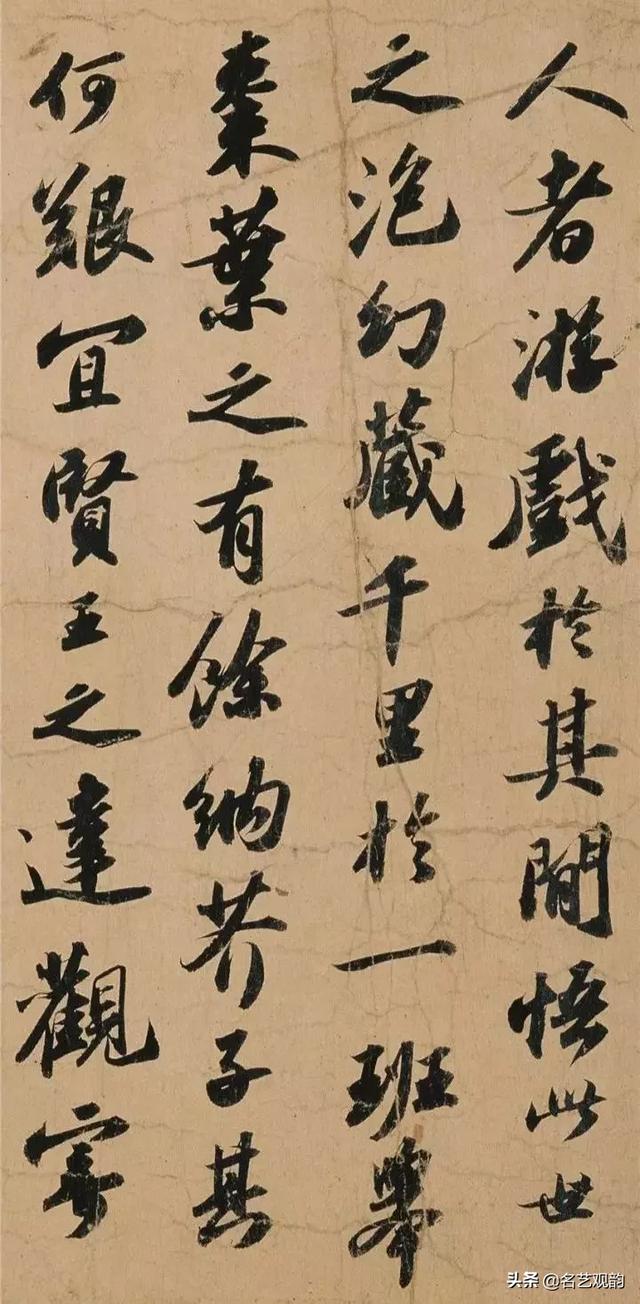 人者游戲於其間悟此世
之泡幻藏千里於一班舉
棗葉之有餘納芥子其
何艱宜賢王之達觀寄
头条 @名艺观韵